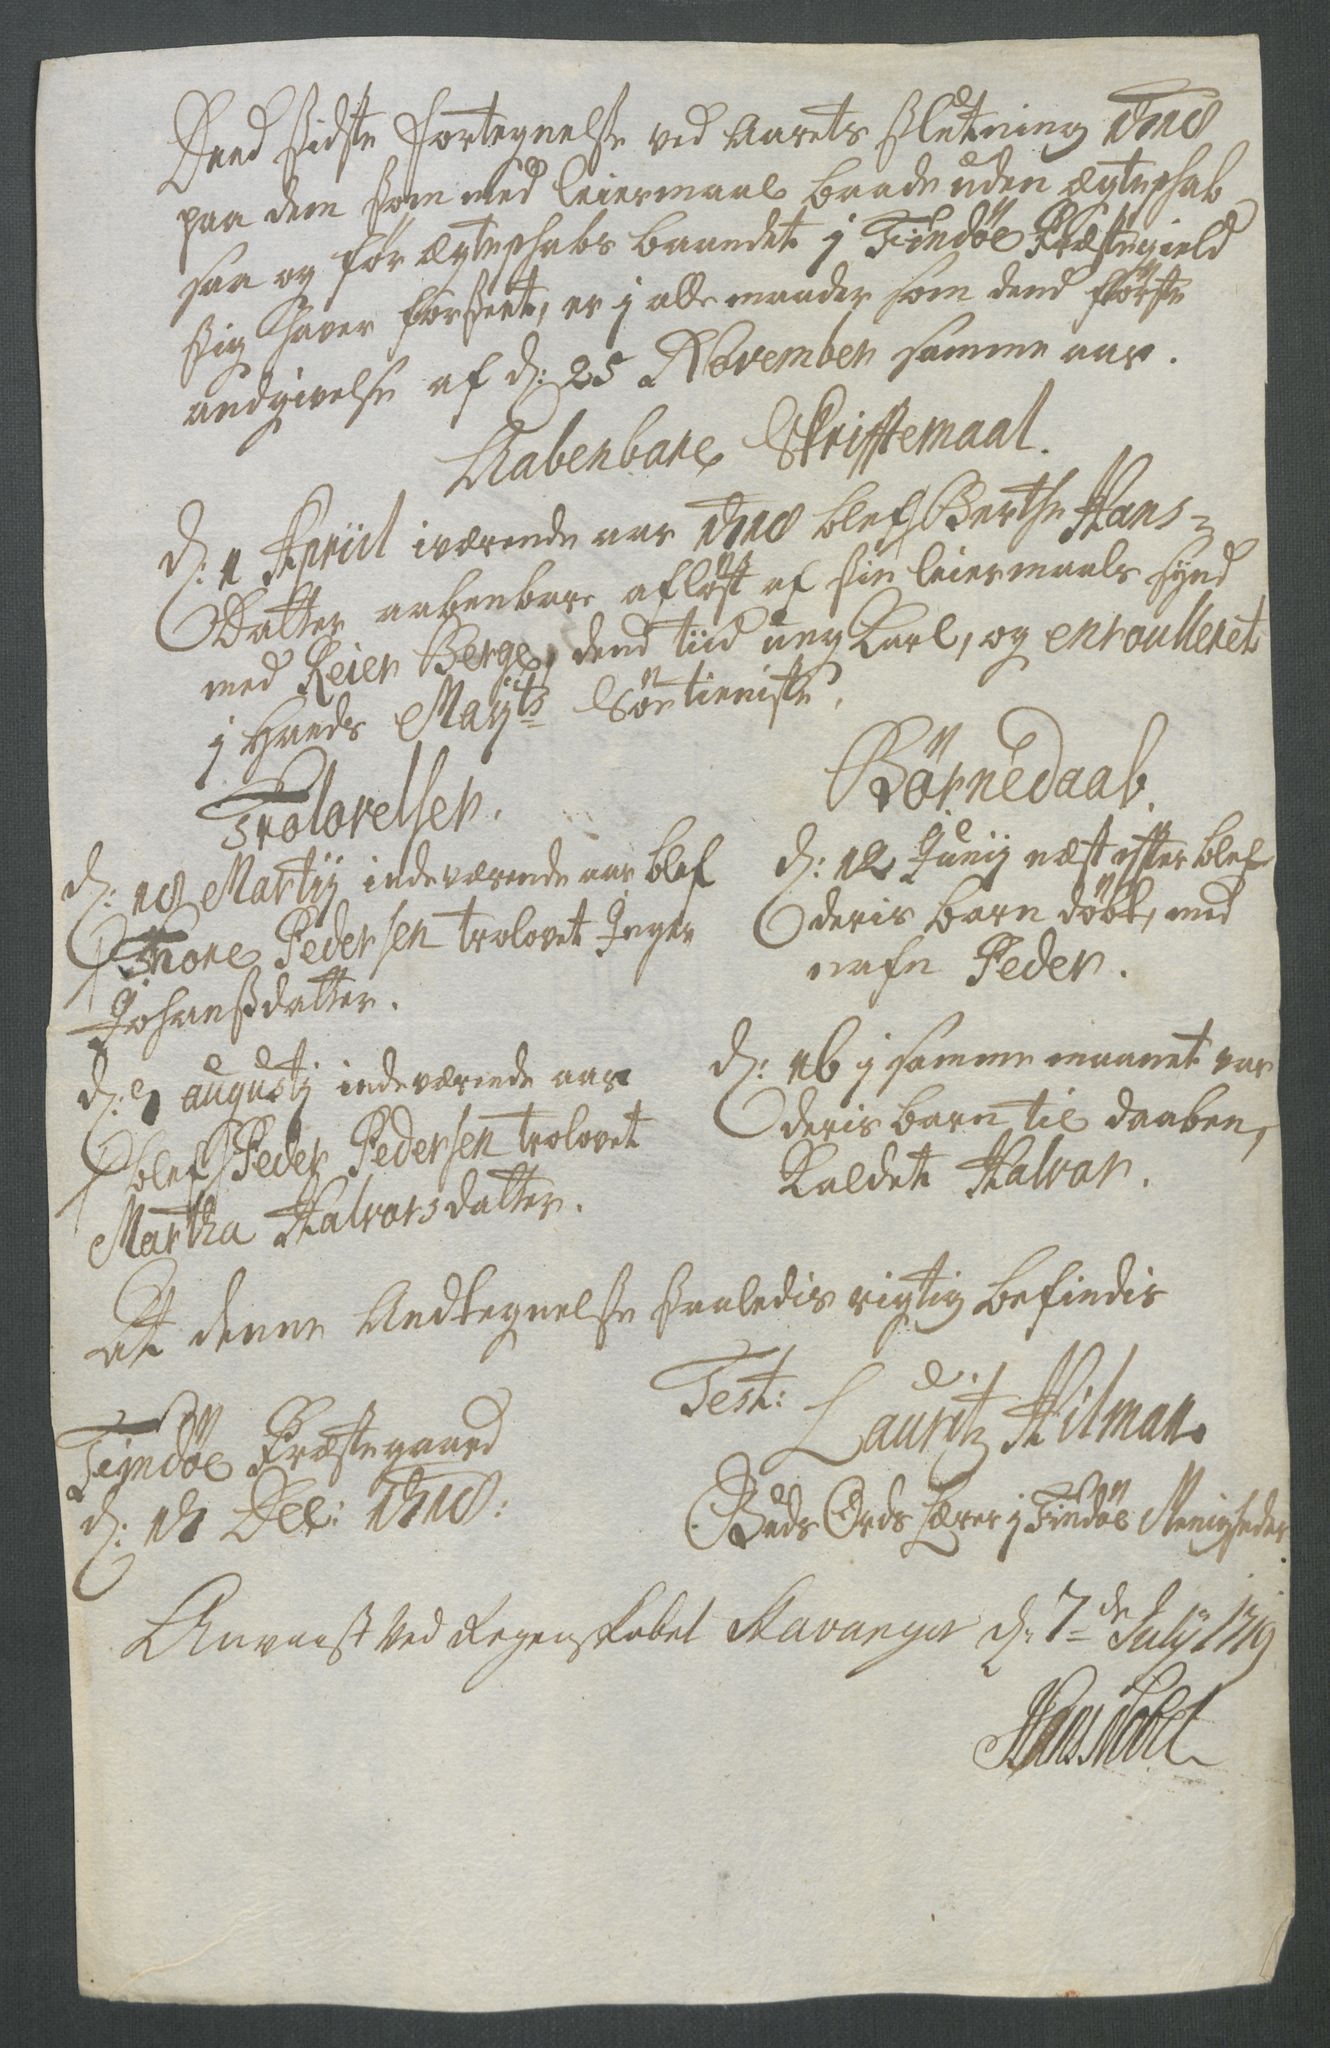 Dend sidste Fortegnelse ved Aarets slutning 1718
paa dem som med leiermaal baade uden ægteschab
saa og før ægteschabs baandet j Findöe Præstegield
sig haver forseet, er j alle maader som dend förste
andgivelse af d: 25 November samme aar.
Aabenbare Skrifftemaal.
d: 1 Apriil iværende aar 1718 blef Berthe Hans-
Datter aabenbare aflöst af sin leiermaals synd
med Reier Berge, dend tiid ung Karl, og enroulleret
j Hands Mayts Söe tieniste.
Trolovelser.
d: 18 Martij indeværende aar blef
Thore Pedersen trolovet Inger
Johansdatter.
d: 7 augustj indeværende aar
blef Peder Pedersen trolovet
Martha Halvorsdatter.
Börnedaab.
d: 12 Junij næst efter blef
deris barn döbt, med
nafn Peder.
d: 16 j samme maanet var
deris barn til daaben,
Kaldet Halvor.
At denne Andtegnelse saaledis rigtig befindis
Test: Lauritz Hilman
Findöe Præstegaard
d: 17 Dec: 1718:
Guds Ords Lærer j Findöe Menigheder.
Anvuist Ved Regenskabet Stavanger d: 7de July 1719
Hans Nobel